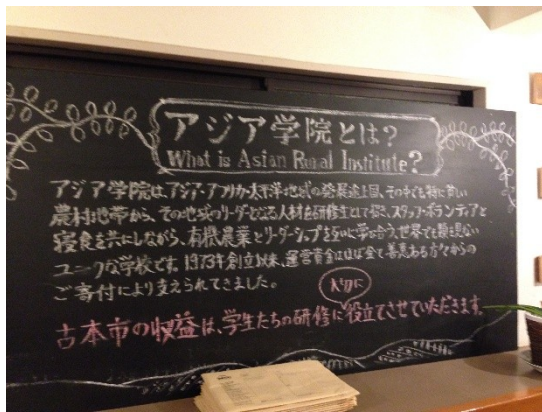 アジア学院とは?
What is Asian Rural Institute?
アジア学院は、アジア・アフリカ・太平洋地域の発展途上国、その中でも特に貧しい
農村地帯から、その地域のリーダーとなる人材を研修生として招き、スタッフ・ボランティアと
寝食を共にしながら、有機農業とリーダーシップを互いに学び合う、世界でも類を見ない
ユニークな学校です。1973年創立以来、運営資金はほぼ全て善意ある方々からの
ご寄付により支えられてきました。
古本市の収益は、学生たちの研修に役立てさせていただきます。